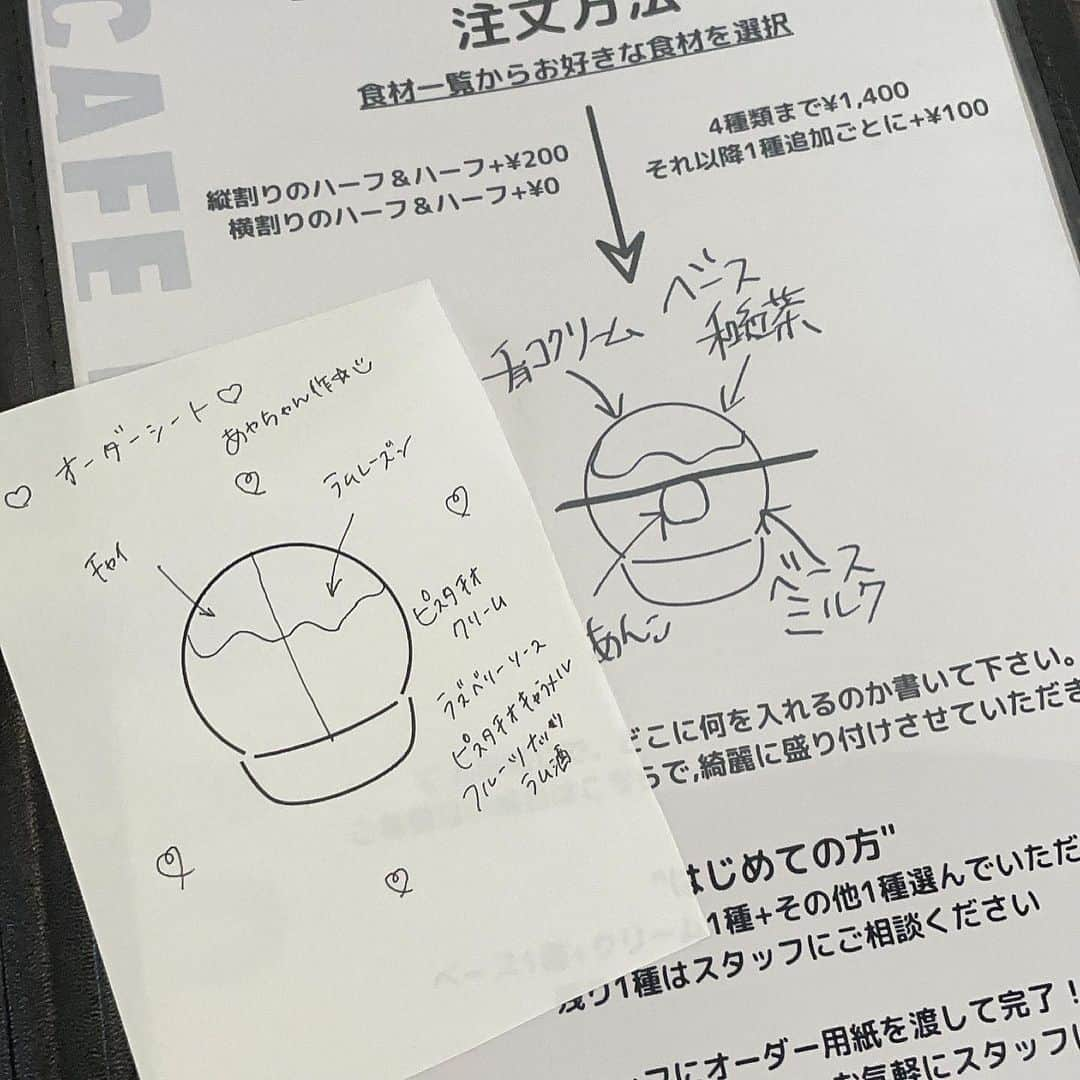 CAFE
注文方法
食材一覧からお好きな食材を選択
4種類まで¥1,400
それ以降1種追加ごとに+¥100
縦割りのハーフ＆ハーフ+¥200
横割りのハーフ＆ハーフ+¥0
チョコクリーム
ベース
和紅茶
あんこ
ベース
ミルク
どこに何を入れるのか書いて下さい。
で,綺麗に盛り付けさせていただき
はじめての方"
1種+その他1種選んでいただ
残り1種はスタッフにご相談ください
にオーダー用紙を渡して完了！
気軽にスタッフに
オーダーシート
あやちゃん作
チャイ
ラムレーズン
ピスタチオ
クリーム
ラズベリーソース
ピスタチオキャラメル
フルーツナッツ
ラム酒